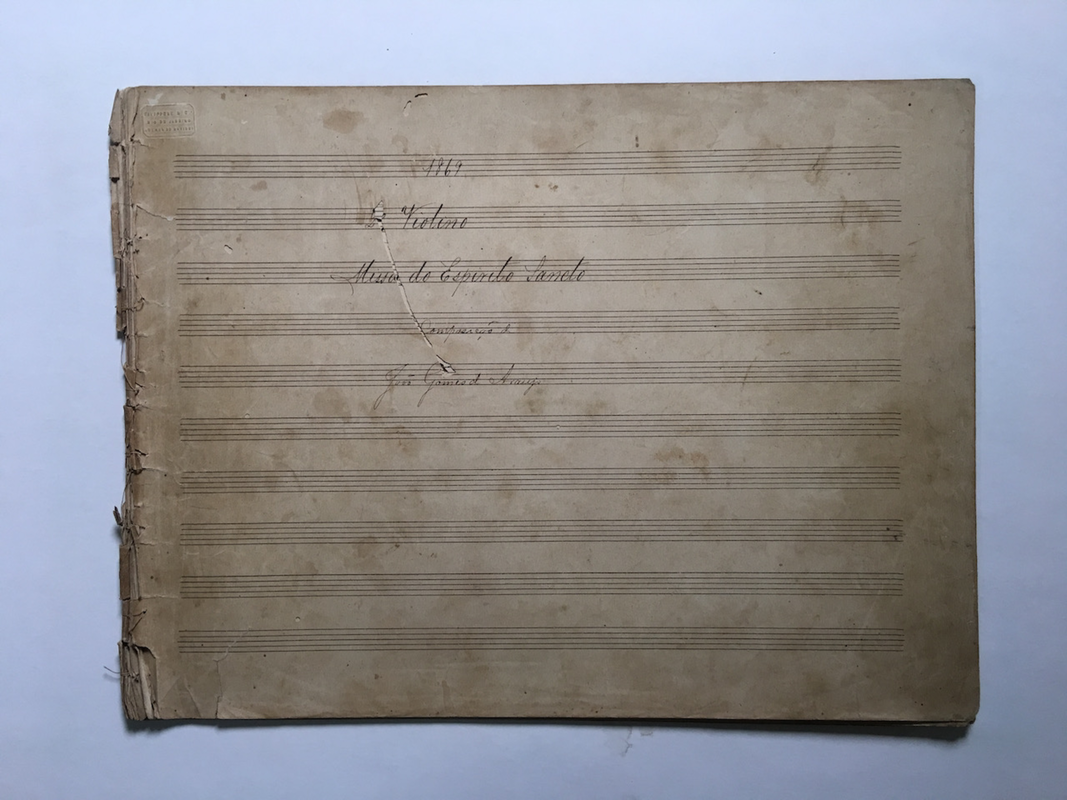 1869
Violino
Missa do Espirito Sancto
Composição d
José Gomes d Araujo